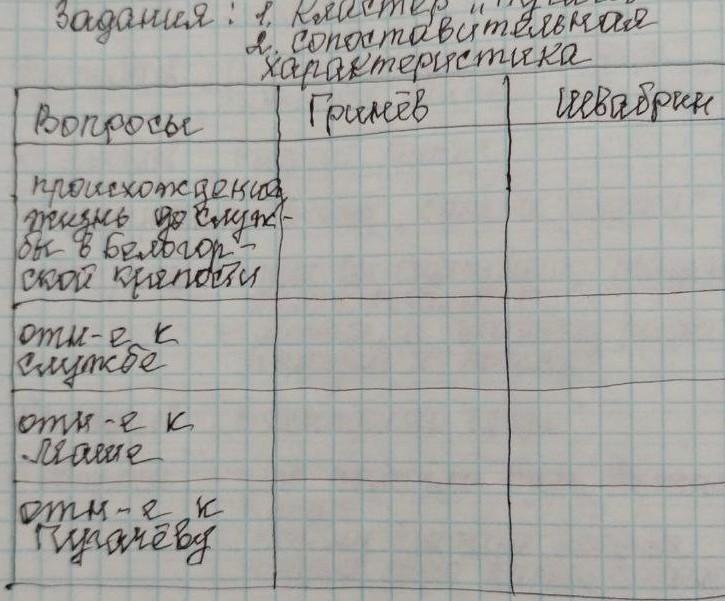 Задания: 1. Кластер "
2. сопоставительная
характеристика
Вопросы
Гринёв
Швабрин
происхождение,
жизнь до служ-
бы в Белогор-
ской крепости
отн-е к
службе
отн-е к
Маше
отн-е к
Пугачёву